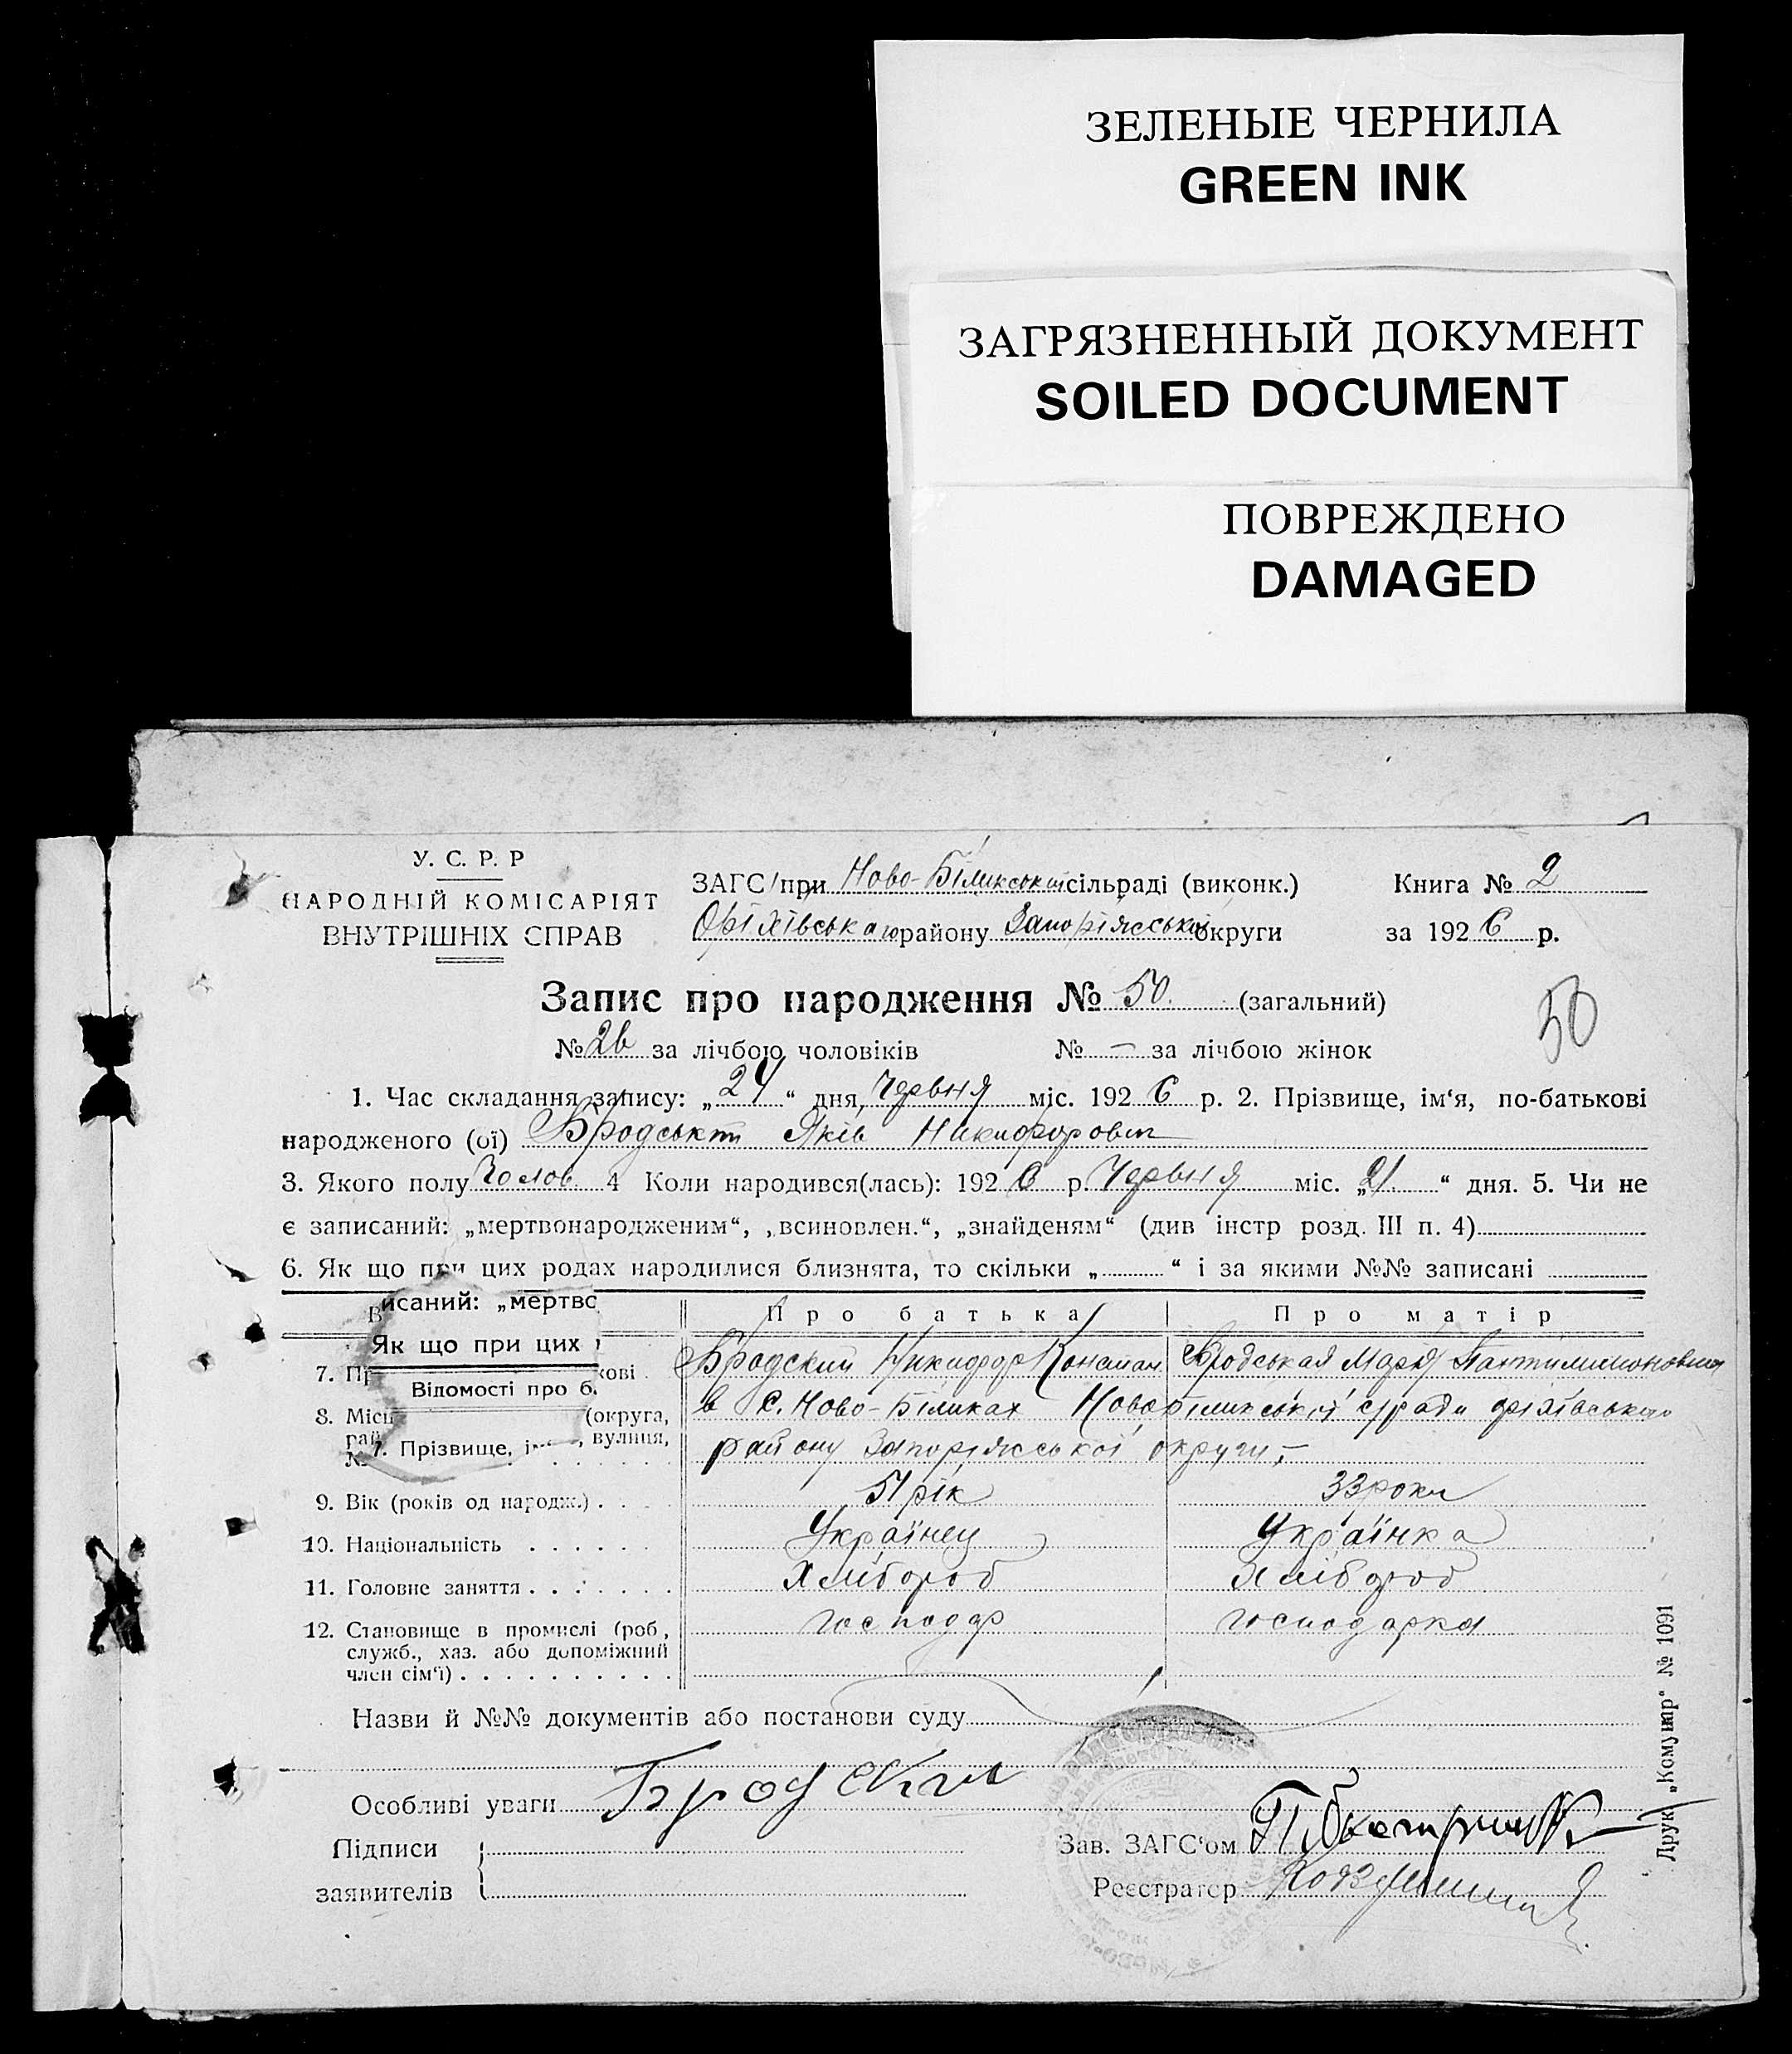 ЗЕЛЕНЫЕ ЧЕРНИЛА
GREEN INK
ЗАГРЯЗНЕННЫЙ ДОКУМЕНТ
SOILED DOCUMENT
ПОВРЕЖДЕНО
DAMAGED
У. С. Р. Р
НАРОДНІЙ КОМІСАРІЯТ
ВНУТРІШНІХ СПРАВ
ЗАГС при Ново-Біликській сільраді (виконк.) Книга № 2
Оріхівського району Запоріжської округи за 1926 р.
Запис про народження № 50. (загальний)
50
№ 26 за лічбою чоловіків № — за лічбою жінок
1. Час складання запису: „24“ дня Червня міс. 1926 р. 2. Прізвище, ім‘я, по-батькові
народженого (ої) Бродський Яків Никифорович
3. Якого полу Чолов. 4 Коли народився(лась): 1926 р. Червня міс. „21“ дня. 5. Чи не
є записаний: „мертвонародженим“, „всиновлен.“, „знайденям“ (див інстр розд. III п. 4)
6. Як що при цих родах народилися близнята, то скільки „ “ і за якими №№ записані
исаний: „мертво
Про батька Про матір
Як що при цих
7. Пр кові Бродский Никифор Констан. Бродськая Марія Пантилимоновна
Відомості про б.
8. Місц (округа, в с. Ново-Біликах Новобіликської с/ ради Оріхівського
рай , вулиця,
7. Прізвище, і району Запоріжської округи, —
№
9. Вік (років од народж.) 51 рік 33 роки
10. Національність Українец Українка
11. Головне заняття Хлібороб Хлібороб
12. Становище в промислі (роб, господар господарка
служб., хаз. або допоміжний
член сім‘ї)
Назви й №№ документів або постанови суду
Особливі уваги Бродский
Підписи
заявителів
Зав. ЗАГС‘ом
Реєстратор
Друк. „Комунар“ № 1091